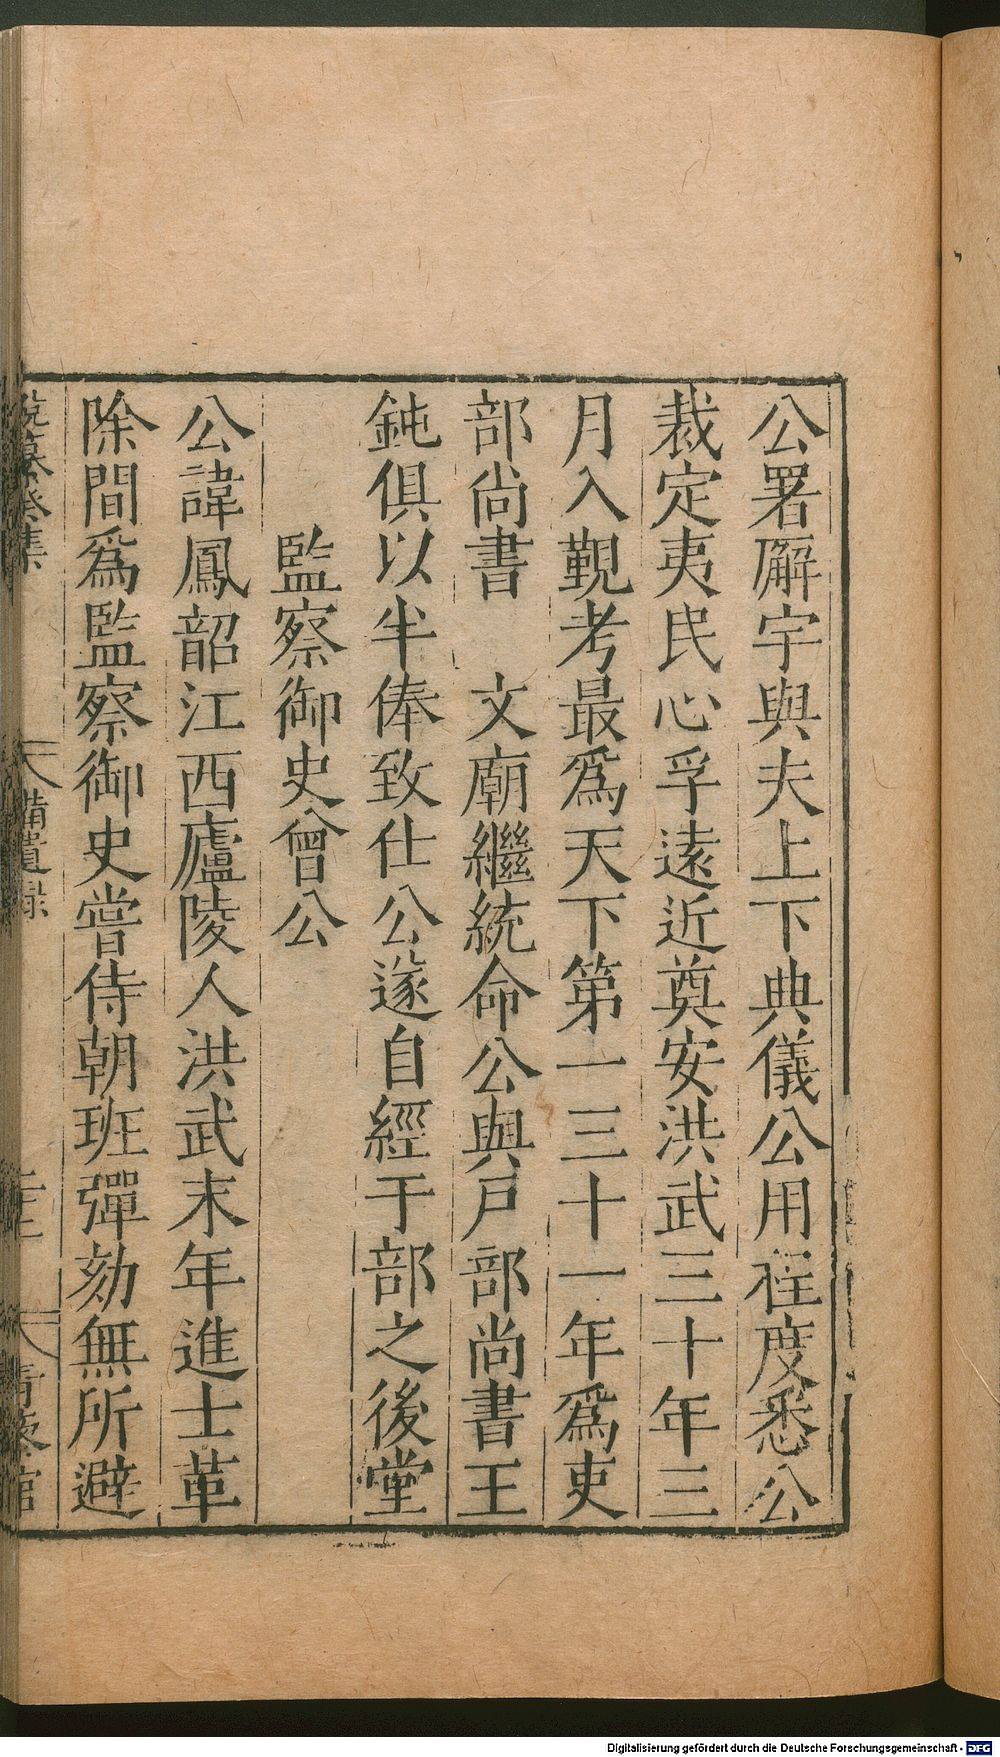 公署廨宇與夫上下典儀公用程度悉公
裁定夷民心孚遠近奠安洪武三十年三
月入覲考最爲天下第一三十一年爲吏
部尚書　文廟繼統命公與戸部尚書王
鈍俱以半俸致仕公遂自經于部之後堂
監察御史曾公
公諱鳳韶江西廬陵人洪武末年進士革
除間爲監察御史嘗侍朝班彈劾無所避
説纂癸集　備遺録
Digitalisierung gefördert durch die Deutsche Forschungsgemeinschaft - DFG